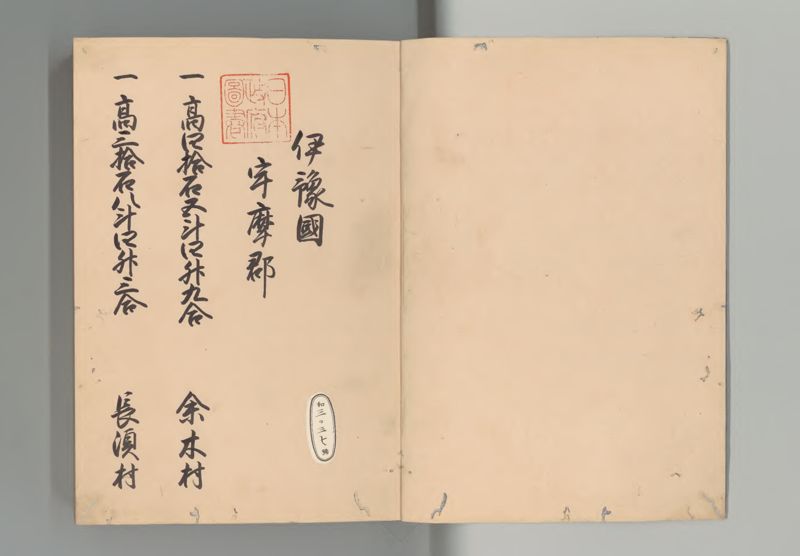 伊豫國
宇摩郡
日本
政府
圖書
一 高四拾石五斗四升九合 余木村
一 高三拾石八斗四升三合 長須村
和三〇三七號